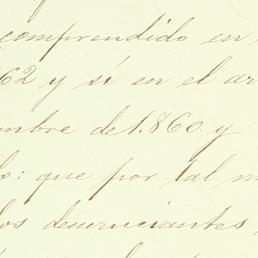 comprendido en
62 y sí en el ar
mbre de 1.860. y
que por tal m
los denunciantes